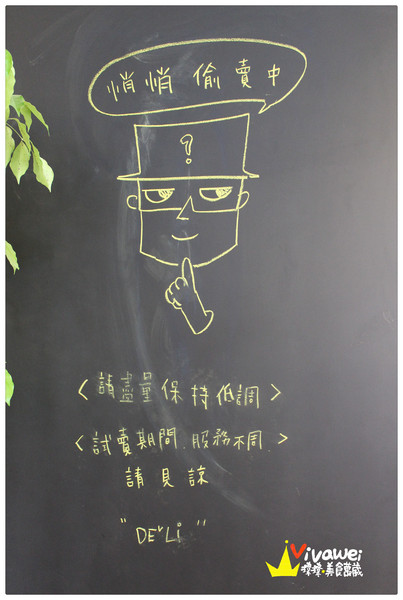 悄悄偷賣中
?
<請盡量保持低調>
<試賣期間.服務不周.>
請見諒
"DEˇLi"
Vivawei
樸樸•美食蒐藏